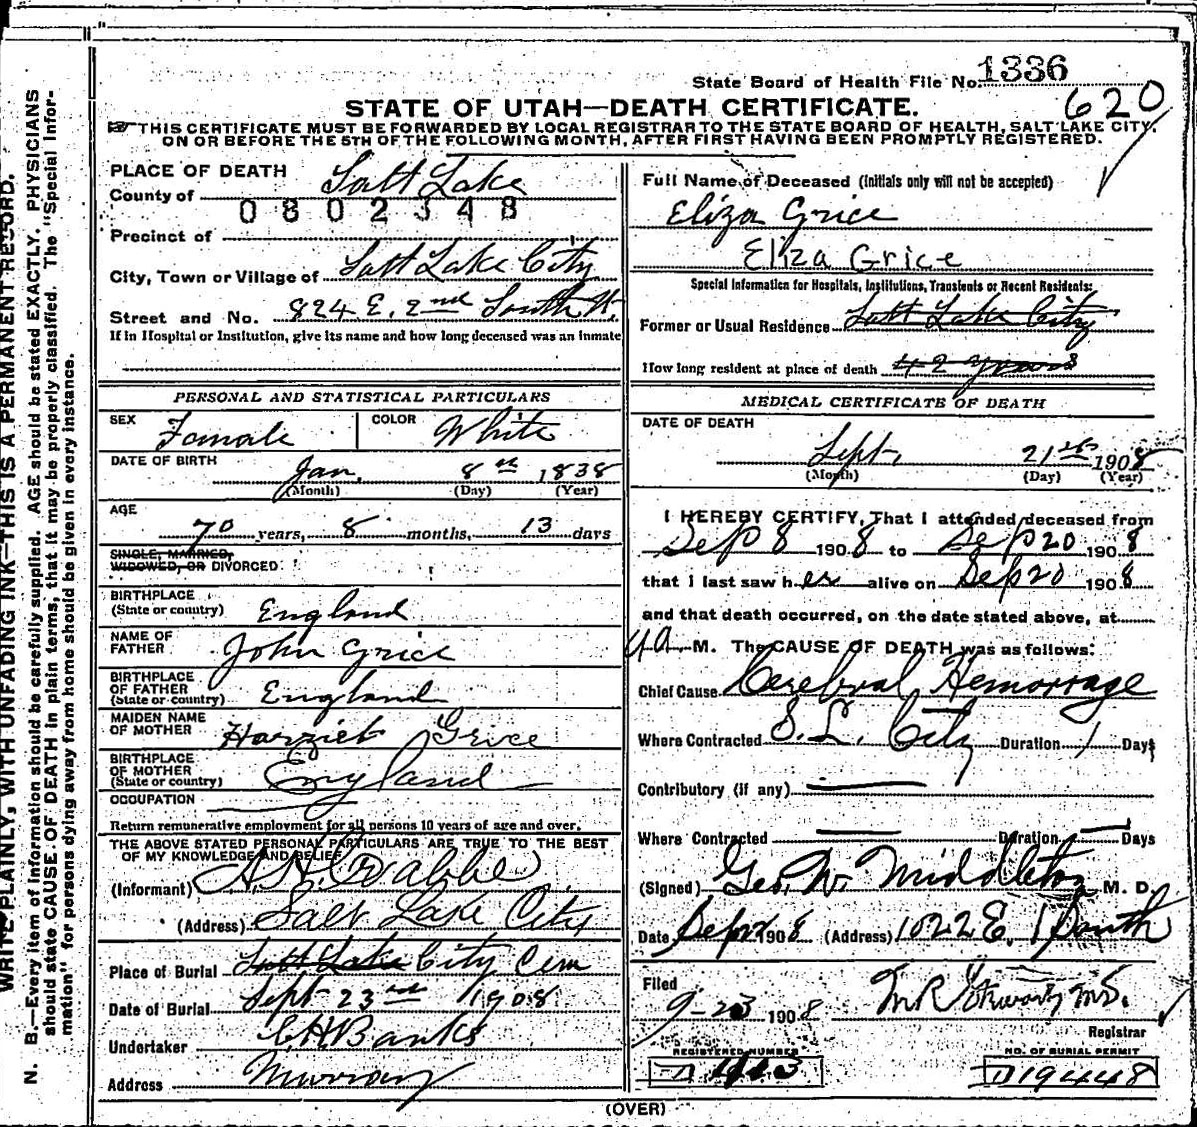 State Board of Health File No. 1336
620
STATE OF UTAH—DEATH CERTIFICATE.
THIS CERTIFICATE MUST BE FORWARDED BY LOCAL REGISTRAR TO THE STATE BOARD OF HEALTH, SALT LAKE CITY,
ON OR BEFORE THE 5TH OF THE FOLLOWING MONTH, AFTER FIRST HAVING BEEN PROMPTLY REGISTERED.
WRITE PLAINLY, WITH UNFADING INK—THIS IS A PERMANENT RECORD.
N. B.—Every item of information should be carefully supplied. AGE should be stated EXACTLY. PHYSICIANS
should state CAUSE OF DEATH in plain terms, that it may be properly classified. The "Special Infor-
mation" for persons dying away from home should be given in every instance.
PLACE OF DEATH
County of Salt Lake
0802348
Precinct of
City, Town or Village of Salt Lake City
Street and No. 824 E. 2nd South St.
If in Hospital or Institution, give its name and how long deceased was an inmate
PERSONAL AND STATISTICAL PARTICULARS
SEX Female COLOR White
DATE OF BIRTH
Jan. 8th 1838
(Month) (Day) (Year)
AGE
70 years, 8 months, 13 days
SINGLE, MARRIED,
WIDOWED, OR DIVORCED
BIRTHPLACE
(State or country) England
NAME OF
FATHER John Grice
BIRTHPLACE
OF FATHER
(State or country) England
MAIDEN NAME
OF MOTHER Harriet Grice
BIRTHPLACE
OF MOTHER
(State or country) England
OCCUPATION
Return remunerative employment for all persons 10 years of age and over.
THE ABOVE STATED PERSONAL PARTICULARS ARE TRUE TO THE BEST
OF MY KNOWLEDGE AND BELIEF
(Informant) A. H. Crabbe
(Address) Salt Lake City
Place of Burial Salt Lake City Cem
Date of Burial Sept 23rd 1908
Undertaker C. H. Banks
Address Murray
Full Name of Deceased (Initials only will not be accepted)
Eliza Grice
Eliza Grice
Special Information for Hospitals, Institutions, Transients or Recent Residents:
Former or Usual Residence Salt Lake City
How long resident at place of death 42 years
MEDICAL CERTIFICATE OF DEATH
DATE OF DEATH
Sept. 21st 1908
(Month) (Day) (Year)
I HEREBY CERTIFY, That I attended deceased from
Sep 8 1908 to Sep 20 1908
that I last saw her alive on Sep 20 1908
and that death occurred, on the date stated above, at
4 a. M. The CAUSE OF DEATH was as follows:
Chief Cause Cerebral Hemorrage
Where Contracted S. L. City Duration 1 Days
Contributory (if any)
Where Contracted Duration Days
(Signed) Geo. W. Middleton M. D.
Date Sep 1908 (Address) 1022 E. 1 South
Filed
9-23 1908
Registrar
REGISTERED NUMBER NO. OF BURIAL PERMIT
D 19448
(OVER)